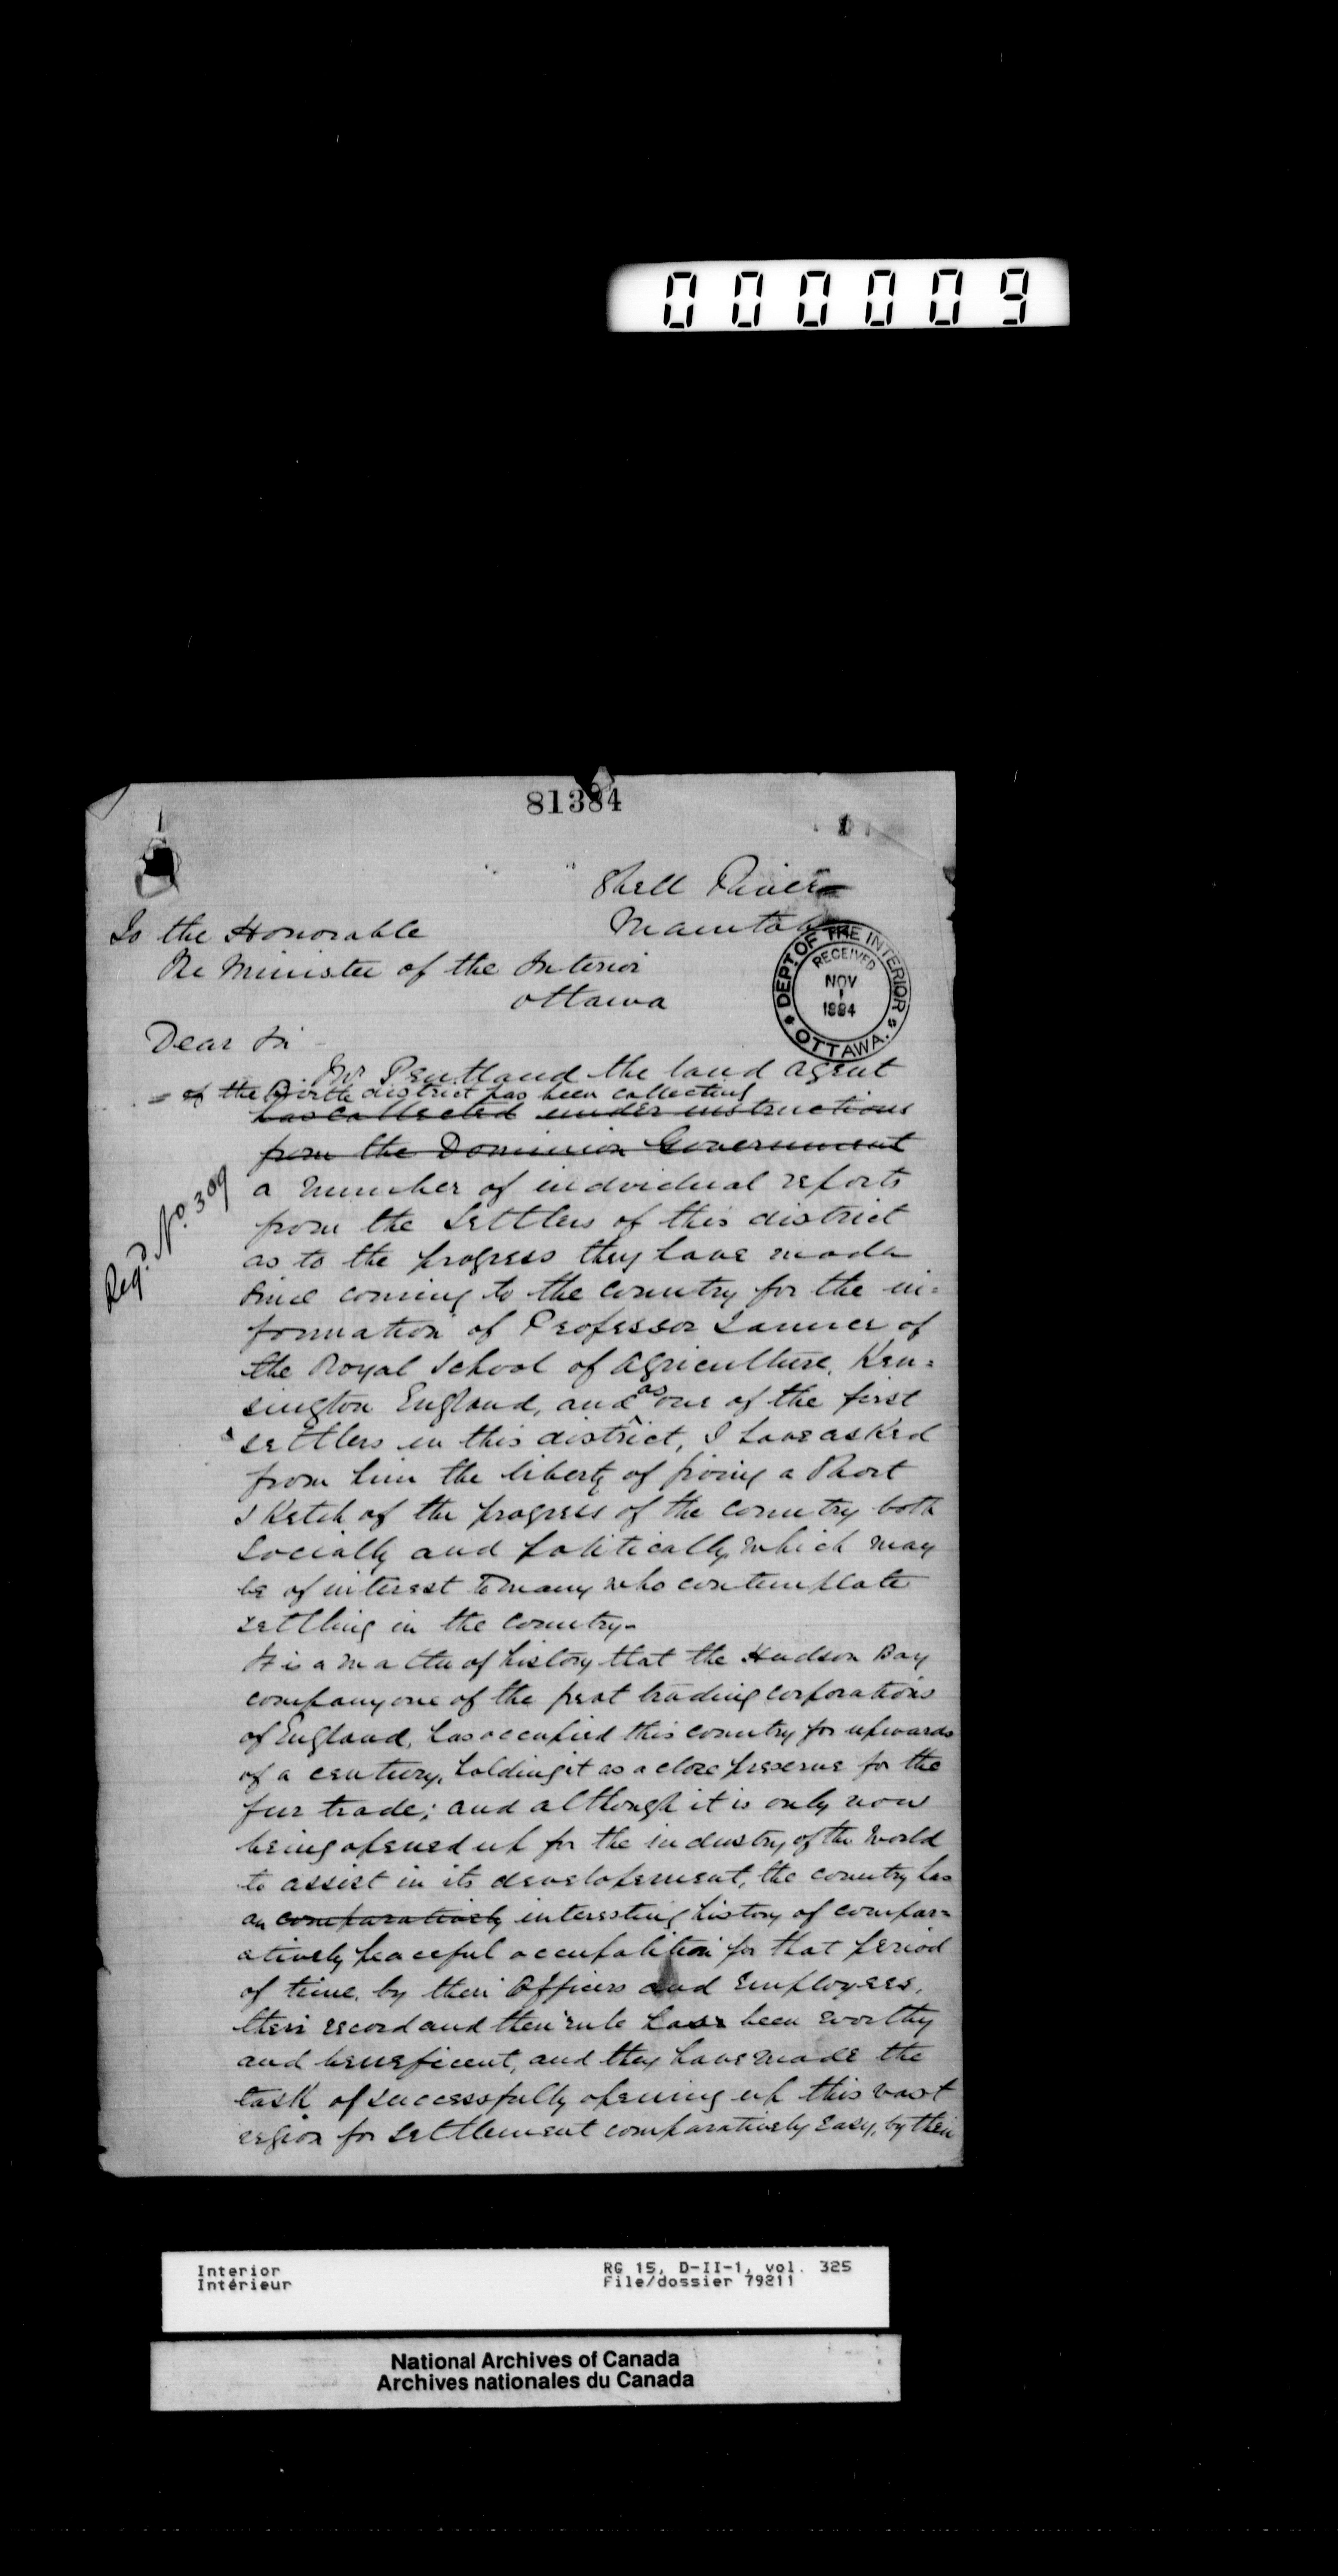 000009
81384
1
Shell River
Manitoba
To the Honorable
The Minister of the Interior
Ottawa
DEPT. OF THE INTERIOR
RECEIVED
NOV
1
1884
OTTAWA.
Dear Sir
Mr Pentland the land agent
of the Birtle district has been collecting
has collected under instructions
from the Dominion Government
Reg.d No. 309
a number of individual reports
from the settlers of this district
as to the progress they have made
since coming to the country for the in=
formation of Professor Tanner of
the Royal School of Agriculture, Ken=
sington England, and as one of the first
settlers in this district, I have asked
from him the liberty of giving a short
sketch of the progress of the country both
socially and politically, which may
be of interest to many who contemplate
settling in the country.
It is a matter of history that the Hudson Bay
company one of the great trading corporations
of England, has occupied this country for upwards
of a century, holding it as a close preserve for the
fur trade; and although it is only now
being opened up for the industry of the world
to assist in its developement, the country has
an comparatively interesting history of compar=
atively peaceful occupatition for that period
of time, by their Officers and Employees,
their record and their rule has been worthy
and beneficent, and they have made the
task of successfully opening up this vast
region for settlement comparatively easy, by their
Interior
Intérieur
RG 15, D-II-1, vol. 325
File/dossier 79211
National Archives of Canada
Archives nationales du Canada